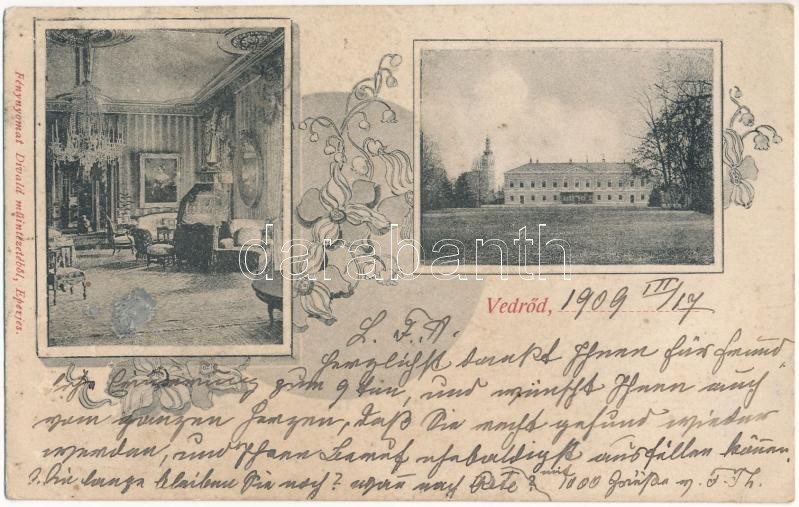 Fénynyomat Divald műintézetéből, Eperjes.
darabanth
Vedrőd, 1909 III/17
L. F. A.
Herzlichst dankt Ihnen für freund-
liche Erinnerung zum 9ten, und wünscht Ihnen auch
vom ganzen Herzen, daß Sie recht gesund wieder
werden, und Ihren Beruf ehebaldigst ausfüllen können.
? Wie lange bleiben Sie noch? wann nach mit 1000 Grüße v. F. Th.